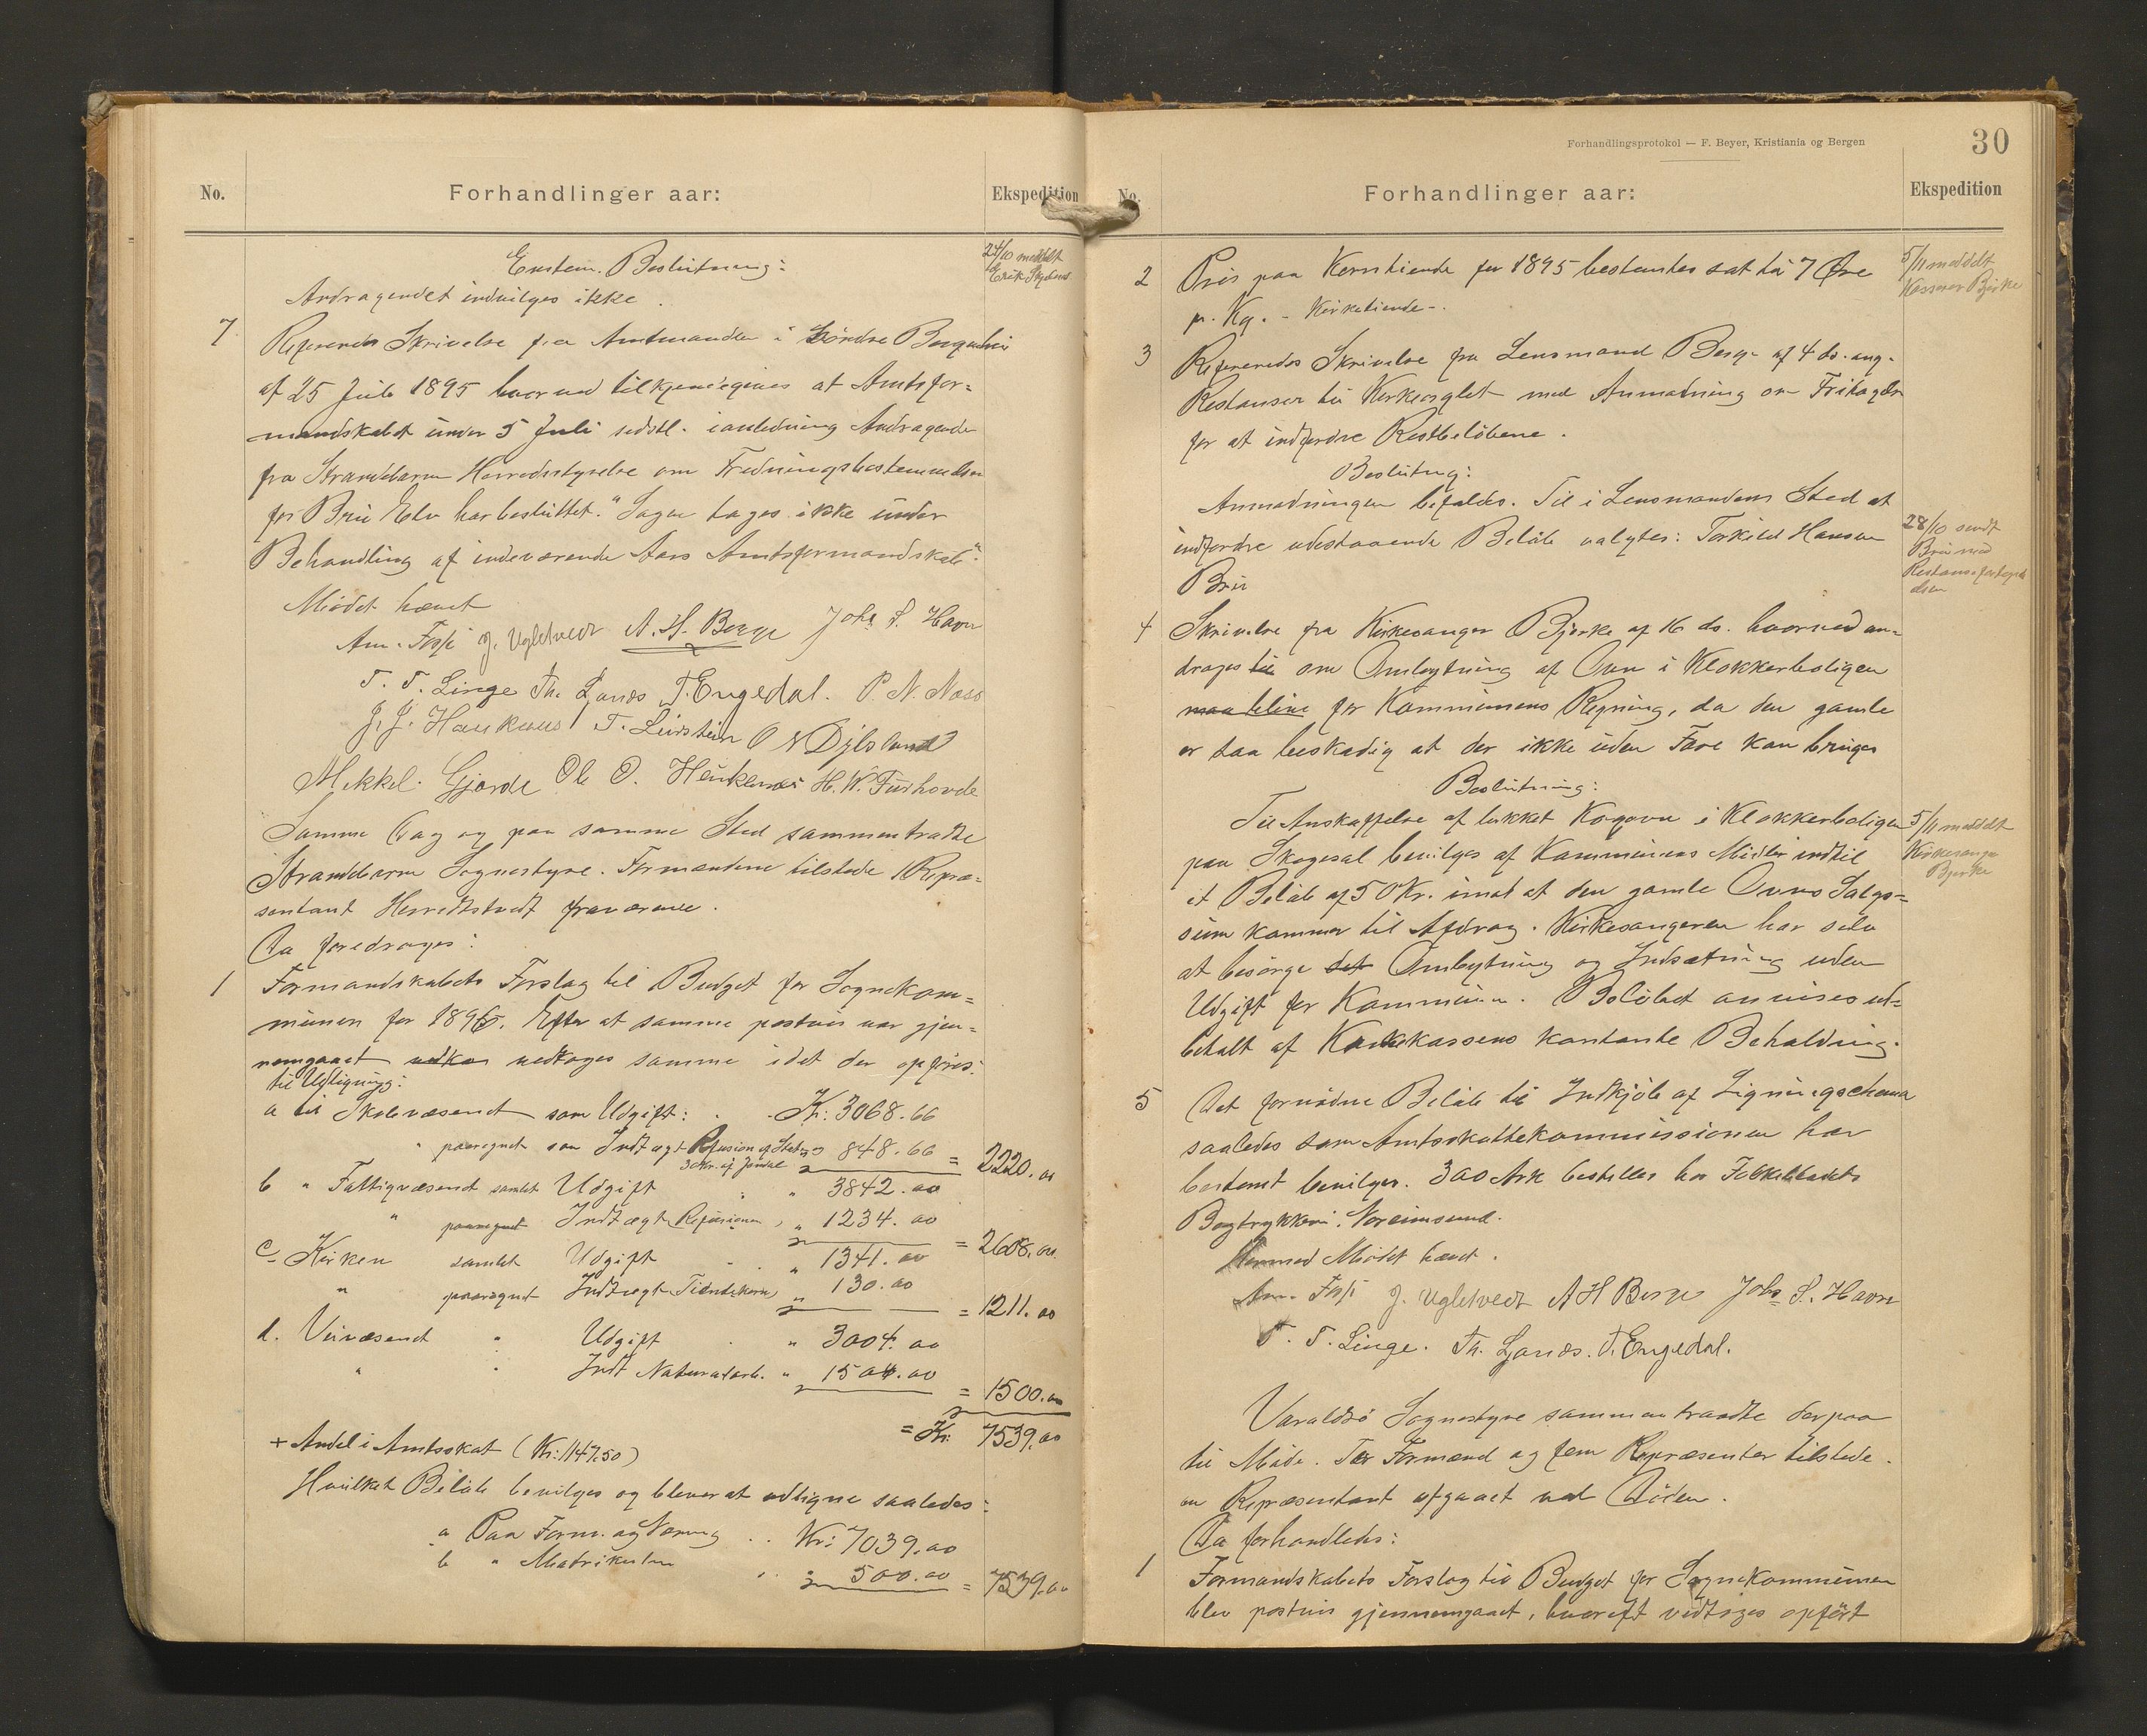 No.
Forhandlinger aar:
Ekspedition
Enstem. Beslutning:
24/10 meddelt
Erik
Andragendet indvilges ikke.
7 Refereredes Skrivelse fra Amtmanden i Søndre Bergenhus
af 25 Juli 1895 hvorved tilkjendegives at Amtsfor=
mandskabet under 5 Juli sidstl. i anledning Andragende
fra Strandebarm Herredsstyrelse om Fredningsbestemmelser
for Bru Elv har besluttet: "Sagen tages ikke under
Behandling af indeværende Aars Amtsformandskab".
Mødet hævet
Am. Fosse J. Ugletvedt A. H. Berge Johs S. Havn
T. T. Linge Th. Lands T. Engedal. P. N. Næss
J. J. Haukanes T. Leirstein O N Djbsland
Mikkel. Gjerde Ole O. Heukenæs H. W. Furhovde
Samme Dag og paa samme Sted sammentraadte
Strandebarm Sognestyre. Formændene tilstede 1 Repræ=
sentant Herredstvedt fraværende.
Da foredroges:
1 Formandskabets Forslag til Budget for Sognekom=
munen for 1896. Efter at samme postvis var gjen=
nemgaaet vedkom vedtoges samme idet der opføres:
til Udligning:
a til Skolevæsenet som Udgift: Kr: 3068.66
" paaregnet som Indtægt Refusion af Stat
30 Kr. af Jondal " 848.66 = 2220.00
b " Fattigvæsenet samlet Udgift " " 3842.00
" paaregnet Indtægt (Refusioner) " 1234.00
= 2608.00
c - Kirken samlet Udgift " 1341.00
" paaregnet Indtægt Tiendekorn " 130.00
= 1211.00
d. Veivæsenet " Udgift " 3004.00
" " Indt Naturalarb. " 1504.00
= 1500.00
= Kr: 7539.00
+ Andel i Amtsskat (Kr: 1147.50)
Hvilket Beløb bevilges og bliver at udligne saaledes:
a Paa Form. og Næring .. Kr: 7039.00
b " Matrikulen " 500.00 = 7539.00
Forhandlingsprotokol — F. Beyer, Kristiania og Bergen
30
No.
Forhandlinger aar:
Ekspedition
2 Pris paa Korntiende for 1895 bestemtes sat til 7 Øre
pr. Kg. - Kirketiende -.
5/11 meddelt
Kasserer Bjørke
3 Refereredes Skrivelse fra Lensmand Berge af 4 ds. ang.
Restanser til Kirkeorglet med Anmodning om Fritagelse
for at indfordre Restbeløbene.
Beslutng:
Anmodningen bifaldes. Til i Lensmandens Sted at
indfordre udestaaende Beløb valgtes: Torkild Hansen
Bru
28/10 sendt
Bru med
Restansefortegnel
elsen
4 Skrivelse fra Kirkesanger Bjørke af 16 ds. hvorved an=
drages til om Ombytning af Ovn i Klokkerboligen
maa blive for Kommunens Regning, da den gamle
er saa beskadig at der ikke uden Fare kan bruges
Beslutning:
Til Anskaffelse af lukket Kogovn i Klokkerboligen
paa Skogesal bevilges af Kommunens Midler indtil
et Beløb af 50 Kr. imod at den gamle Ovns Salgs=
sum kommer til Afdrag. Kirkesangeren har selv
at besørge det Ombytning og Indsætning uden
Udgift for Kommunen. Beløbet anvises ud=
betalt af Kirkekassens kontante Beholdning.
5/11 meddelt
Kirkesanger
Bjørke
5 Det fornødne Beløb til Indkjøb af Ligningsschema
saaledes som Amtsskattekommissionen har
bestemt bevilges. 300 Ark bestilles hos Folkebladets
Bogtrykkeri, Noreimsund.
Hermed Mødet hævet.
Am. Fosse J. Ugletvedt A H Berge Johs S. Havn
T. T. Linge. Th. Lands. T. Engedal.
Varaldsø Sognestyre sammentraadte derpaa
til Møde. To Formænd og fem Repræsenter tilstede.
en Repræsentant afgaaet ved Døden.
Da forhandledes:
1 Formandskabets Forslag til Budget for Sognekommunen
blev postvis gjennemgaaet, hvoreft vedtoges opført